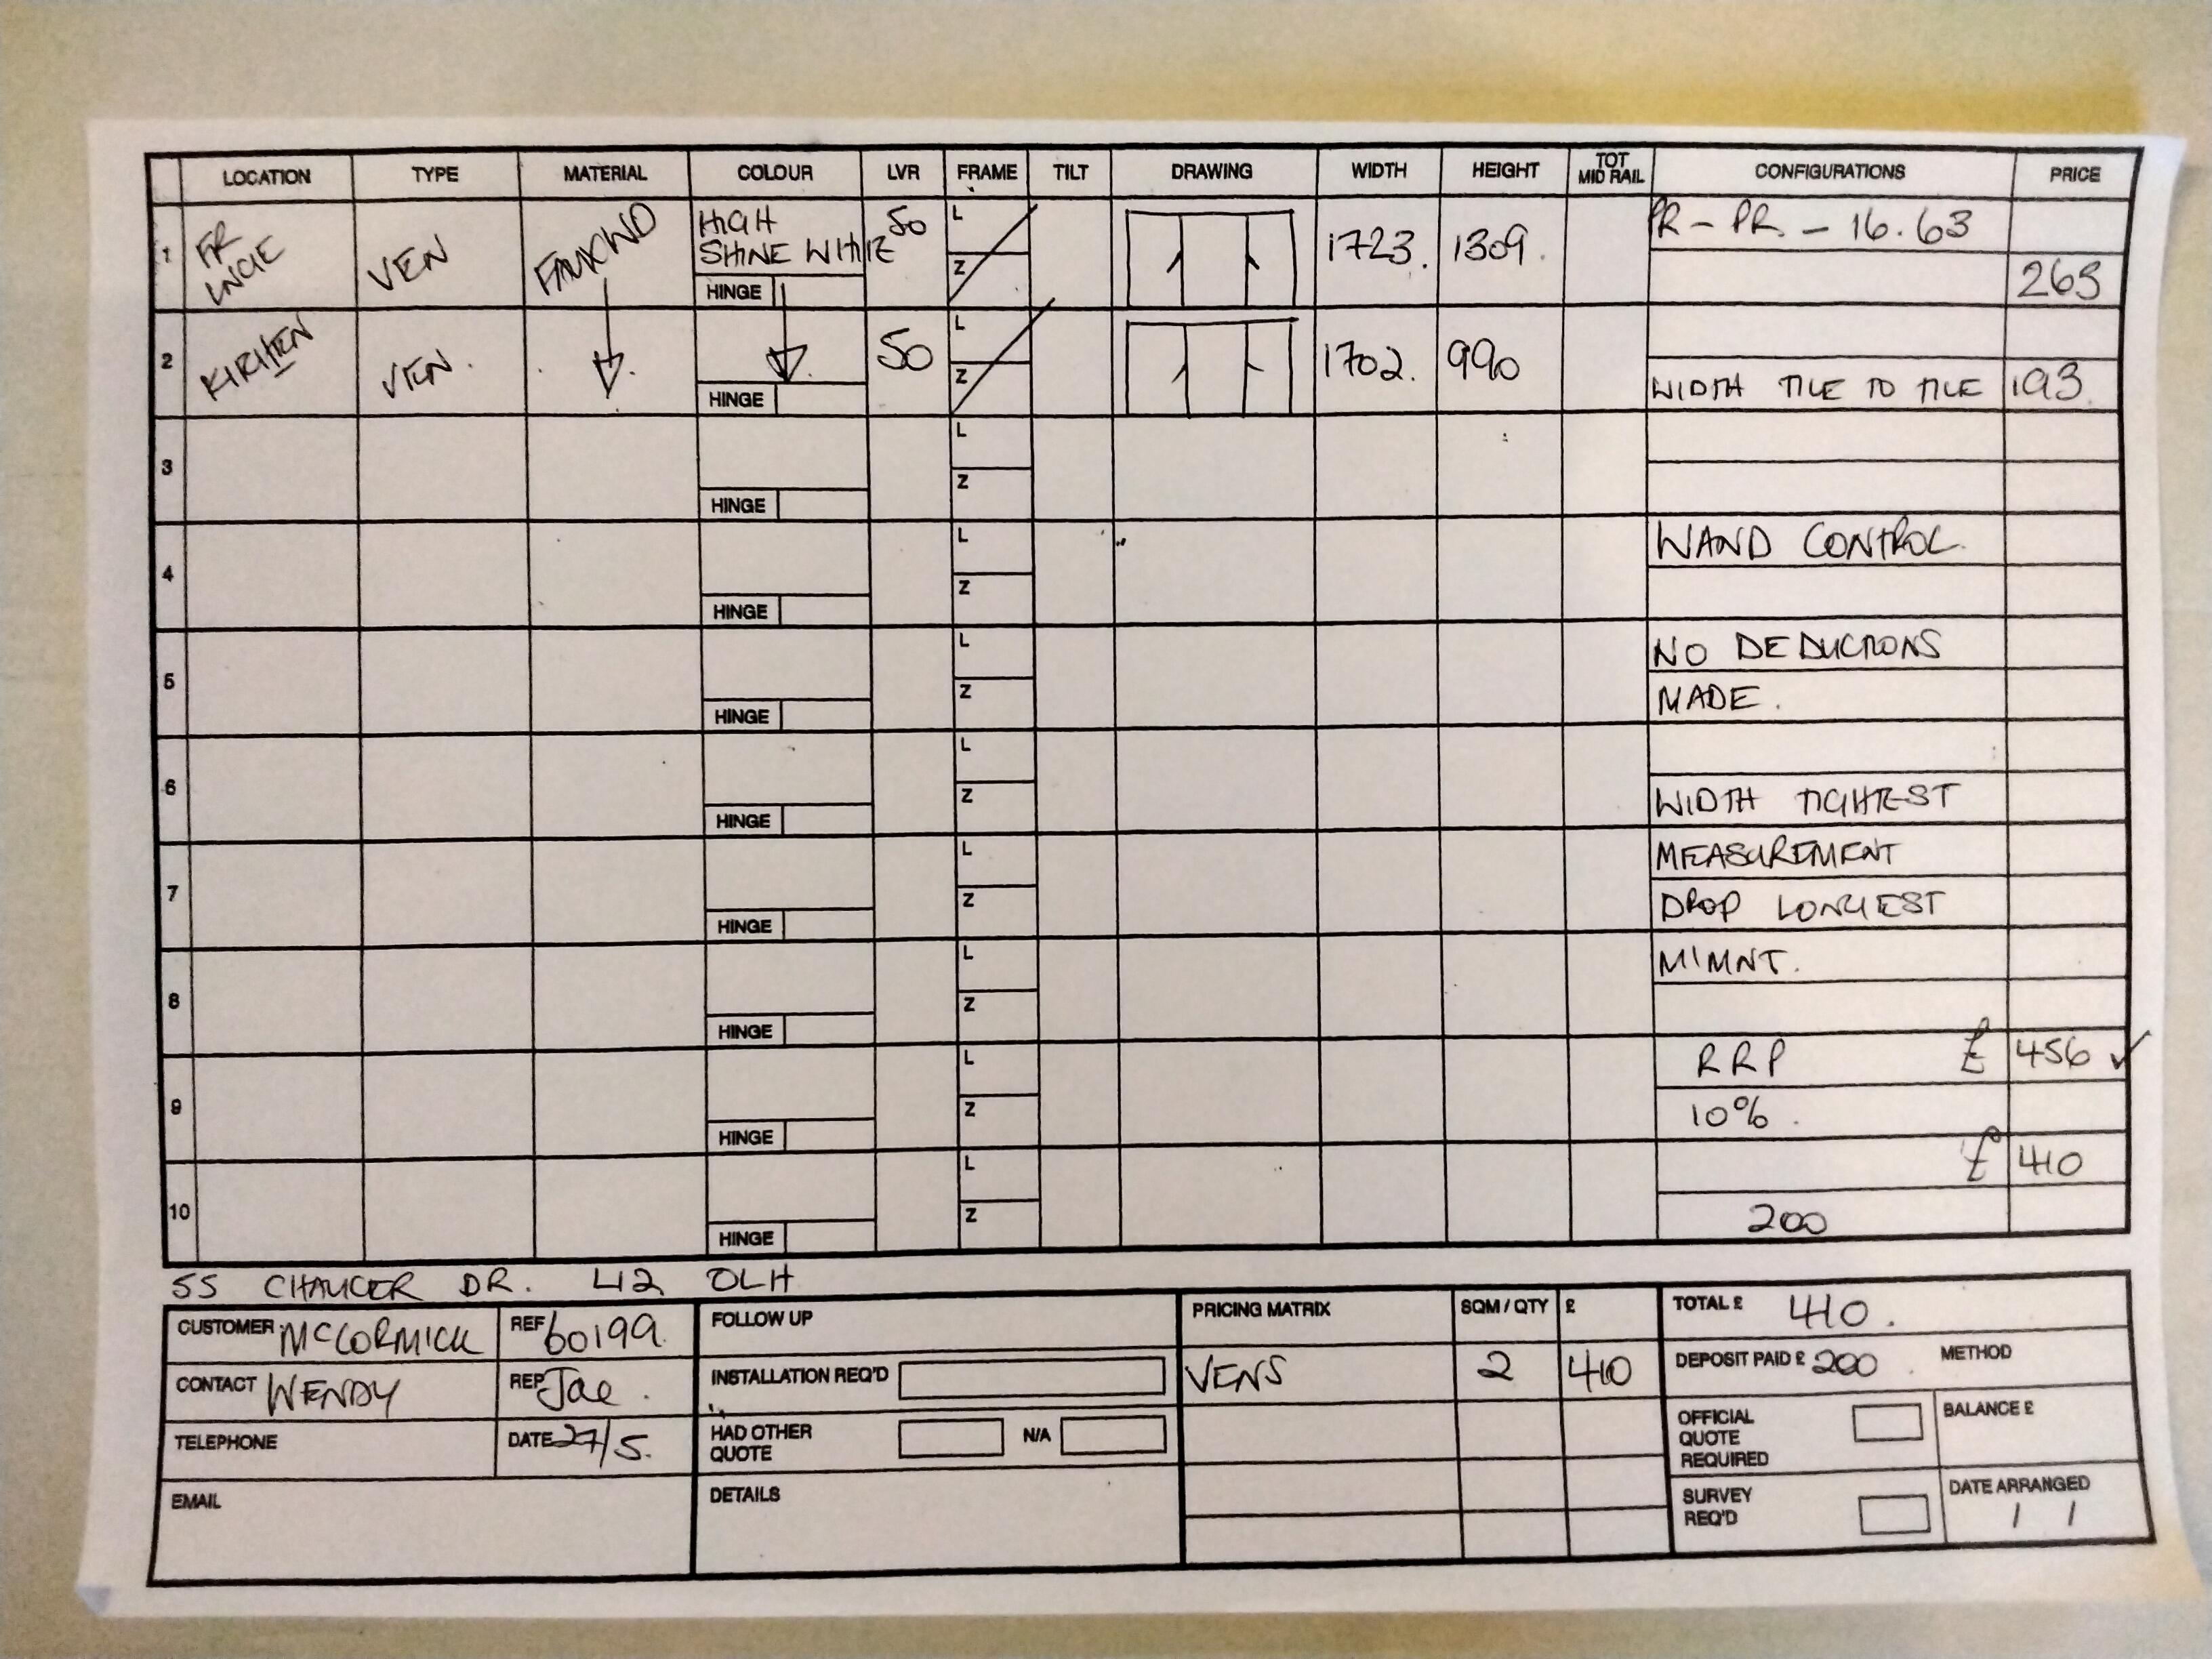 LOCATION TYPE MATERIAL COLOUR LVR FRAME TILT DRAWING WIDTH HEIGHT TOT MID RAIL CONFIGURATIONS PRICE
1 FR LNGE VEN FAUXWD HIGH SHINE WHITE 50 L Z 1723. 1309. PR - PR - 16.63
HINGE 263
2 KITCHEN VEN. 50 L Z 1702. 990
HINGE WIDTH TILE TO TILE 193.
3 L Z
HINGE
4 L Z WAND CONTROL.
HINGE
5 L Z NO DEDUCTIONS
HINGE MADE.
6 L Z
HINGE WIDTH TIGHTEST
7 L Z MEASUREMENT
HINGE DROP LONGEST
8 L Z M'MNT.
HINGE
9 L Z RRP £ 456 ✓
HINGE 10%.
10 L Z £ 410
HINGE 200
55 CHAUCER DR. L12 0LH
CUSTOMER McCORMICK REF 60199
CONTACT WENDY REP Jae.
TELEPHONE DATE 27/5.
EMAIL
FOLLOW UP
INSTALLATION REQ'D
HAD OTHER QUOTE N/A
DETAILS
PRICING MATRIX SQM / QTY £
VENS 2 410
TOTAL £ 410.
DEPOSIT PAID £ 200 METHOD
OFFICIAL QUOTE REQUIRED BALANCE £
SURVEY REQ'D DATE ARRANGED
/ /